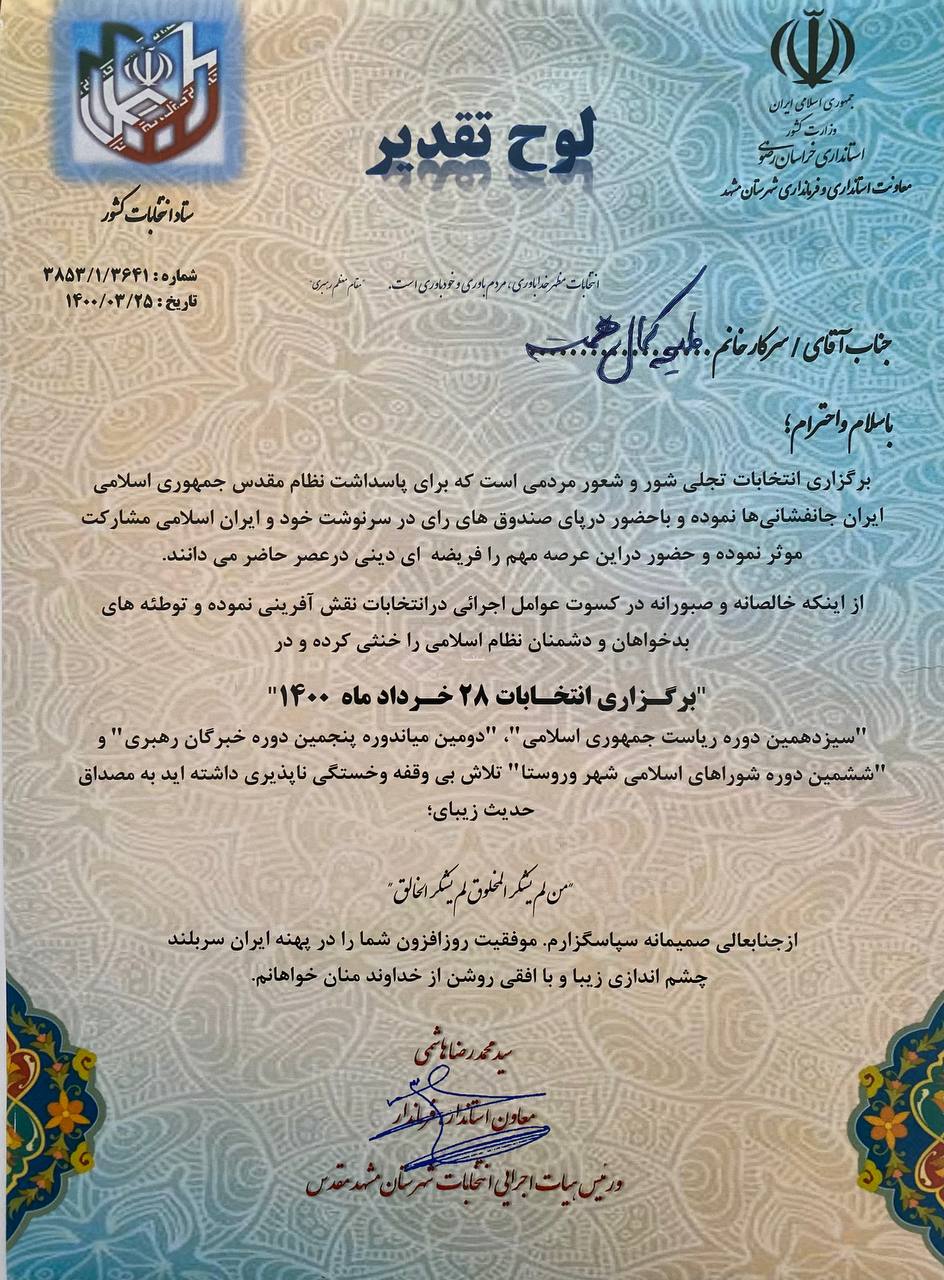 جمهوری اسلامی ایران
وزارت کشور
استانداری خراسان رضوی
معاونت استانداری و فرمانداری شهرستان مشهد
لوح تقدیر
ستاد انتخابات کشور
شماره : ۳۸۵۳/۱/۳۶۴۱
تاریخ : ۱۴۰۰/۰۳/۲۵
انتخابات مظهر خداباوری، مردم باوری و خودباوری است. "مقام معظم رهبری"
جناب آقای / سرکار خانم
باسلام و احترام؛
برگزاری انتخابات تجلی شور و شعور مردمی است که برای پاسداشت نظام مقدس جمهوری اسلامی
ایران جانفشانی‌ها نموده و باحضور درپای صندوق های رای در سرنوشت خود و ایران اسلامی مشارکت
موثر نموده و حضور دراین عرصه مهم را فریضه ای دینی درعصر حاضر می دانند.
از اینکه خالصانه و صبورانه در کسوت عوامل اجرائی درانتخابات نقش آفرینی نموده و توطئه های
بدخواهان و دشمنان نظام اسلامی را خنثی کرده و در
"برگزاری انتخابات ۲۸ خرداد ماه ۱۴۰۰"
"سیزدهمین دوره ریاست جمهوری اسلامی"، "دومین میاندوره پنجمین دوره خبرگان رهبری" و
"ششمین دوره شوراهای اسلامی شهر وروستا" تلاش بی وقفه وخستگی ناپذیری داشته اید به مصداق
حدیث زیبای؛
"من لم یشکر المخلوق لم یشکر الخالق"
ازجنابعالی صمیمانه سپاسگزارم. موفقیت روزافزون شما را در پهنه ایران سربلند
چشم اندازی زیبا و با افقی روشن از خداوند منان خواهانم.
سید محمدرضا هاشمی
معاون استاندار و فرماندار
و رئیس هیات اجرایی انتخابات شهرستان مشهد مقدس